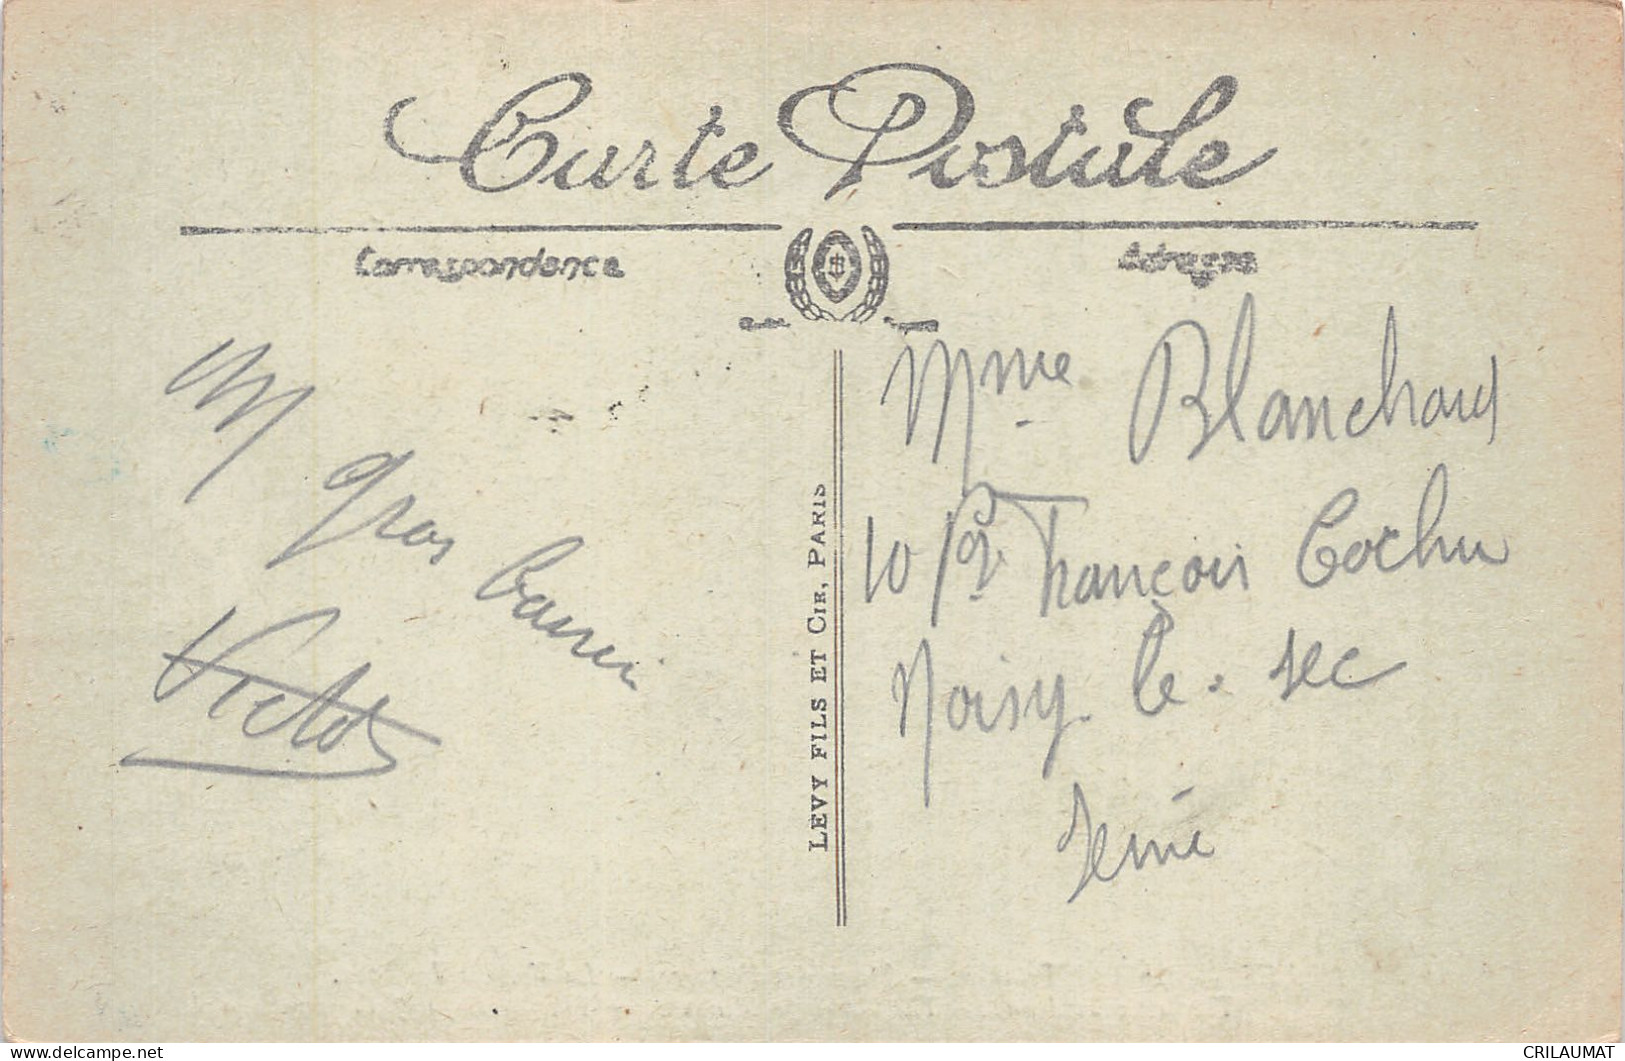 Carte Postale
Correspondence
Adresse
LEVY FILS ET CIE, PARIS
Un
gros
baiser
Victor
Mme Blanchard
10 Pce François Cochu
Noisy-le-sec
Seine
CRILAUMAT